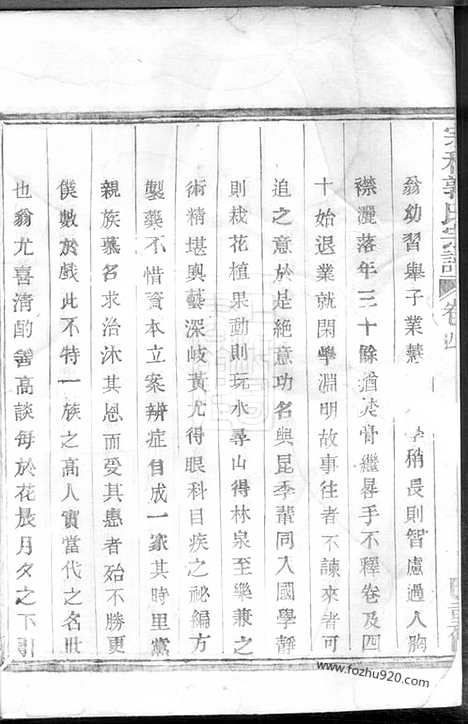 郭氏宗譜
卷四
翁幼習舉子業 稍長則智慮過人胸
襟灑落年三十餘猶焚膏繼晷手不釋卷及四
十始退業就閑學淵明故事往者不諫來者可
追之意於是絕意功名與昆季輩同入國學靜
則栽花植果動則玩水尋山得林泉至樂兼之
術精堪輿藝深岐黃尤得眼科目疾之祕編方
製藥不惜資本立案辨症自成一家其時里黨
親族慕名求治沐其恩而受其惠者殆不勝更
僕數於戲此不特一族之高人實當代之名世
也翁尤喜清酌善高談每於花晨月夕之下引
www.fozhu920.com